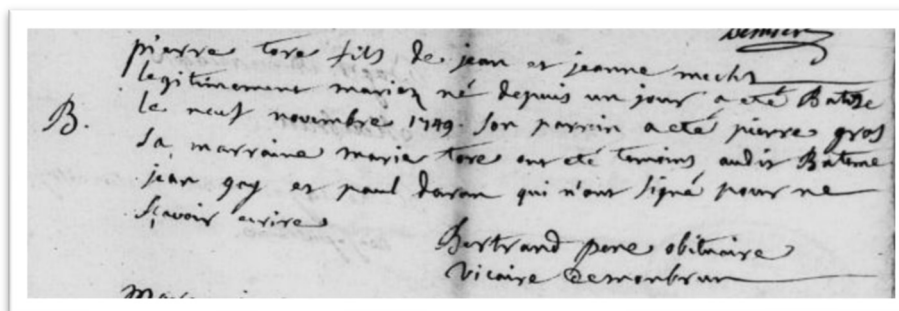 pierre tore fils de jean et jeanne mechs
legitimement mariez né depuis un jour a eté Batize
B. le neuf novembre 1749. Son parrin a eté pierre gros
Sa marraine marie tore ont eté temoins audit Bateme
jean gay et paul daran qui n'ont signé pour ne
Sçavoir ecrire
Bertrand obituaire
Vicaire demonbrun